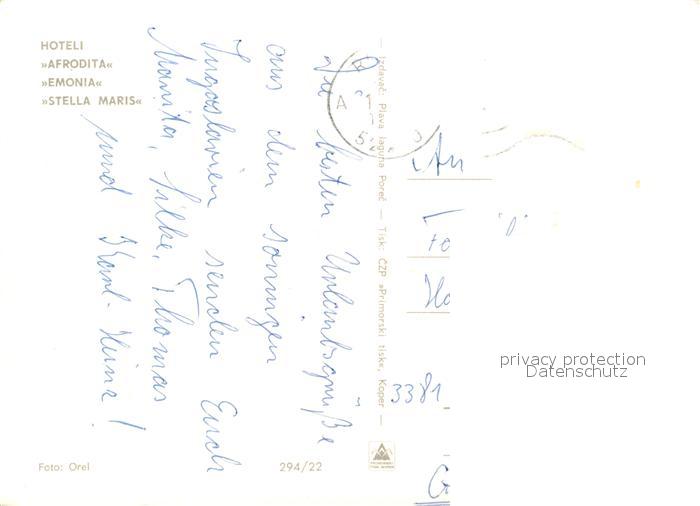 HOTELI
»AFRODITA«
»EMONIA«
»STELLA MARIS«
Die besten Urlaubsgrüße
aus dem sonnigen
Jugoslavien senden Euch
Manita, Silke, Thomas
und Karl-Heinz!
Izdavač: Plava laguna Poreč — Tisk: ČZP »Primorski tisk«, Koper —
A
An
Ho
3381
privacy protection
Datenschutz
Foto: Orel
294/22